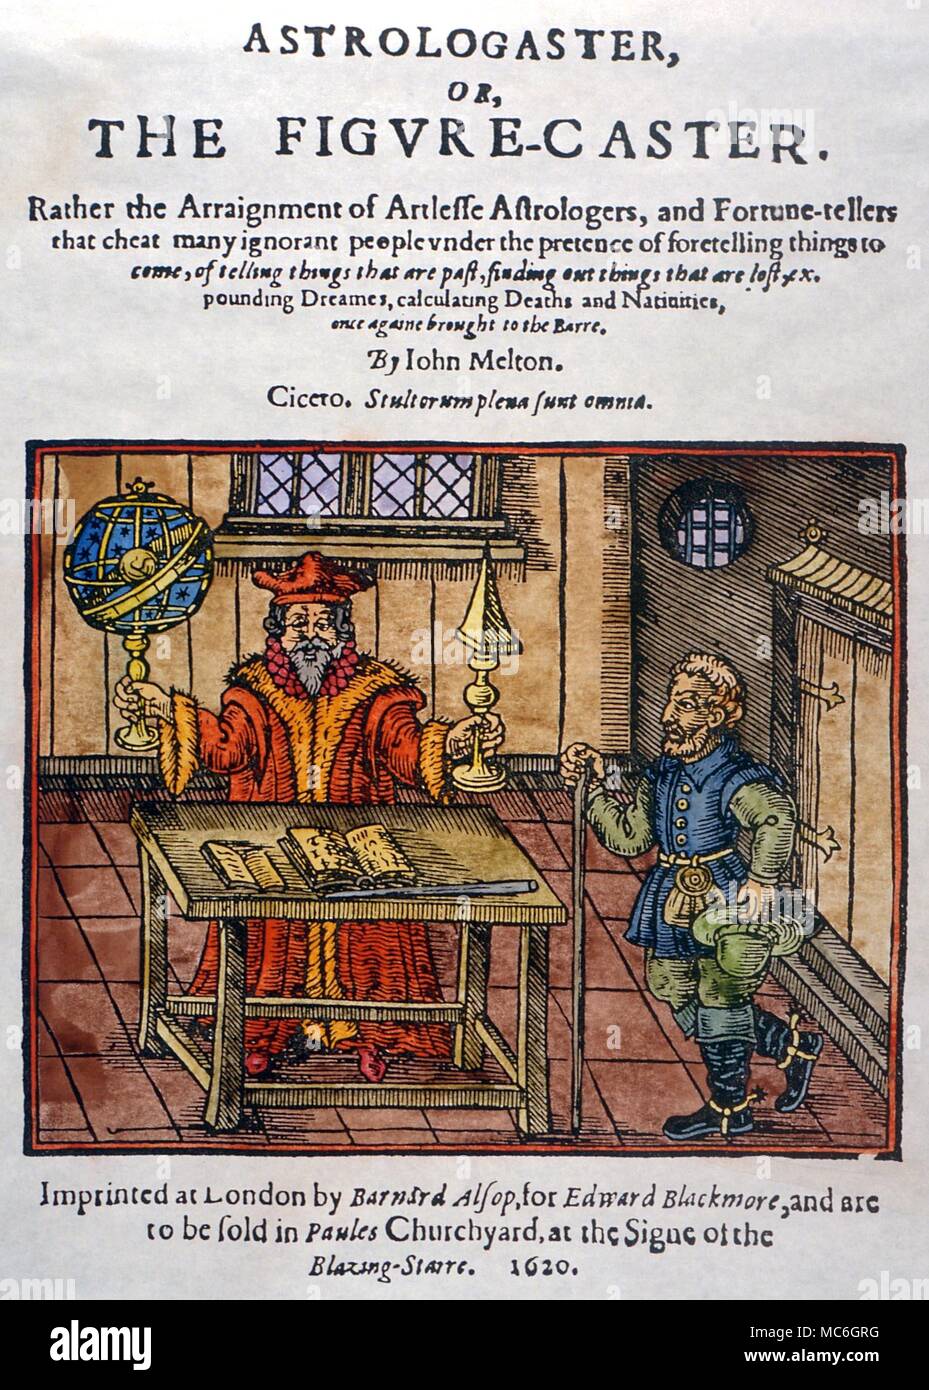 ASTROLOGASTER,
OR,
THE FIGVRE-CASTER.
Rather the Arraignment of Artleſſe Aſtrologers, and Fortune-tellers
that cheat many ignorant people vnder the pretence of foretelling things to
come, of telling things that are paſt, finding out things that are loſt, ex.
pounding Dreames, calculating Deaths and Natiuities,
once againe brought to the Barre.
By Iohn Melton.
Cicero. Stultorum plena ſunt omnia.
Imprinted at London by Barnard Alſop, for Edward Blackmore, and are
to be ſold in Paules Churchyard, at the Signe of the
Blazing-Starre. 1620.
alamy
Image ID: MC6GRG
www.alamy.com